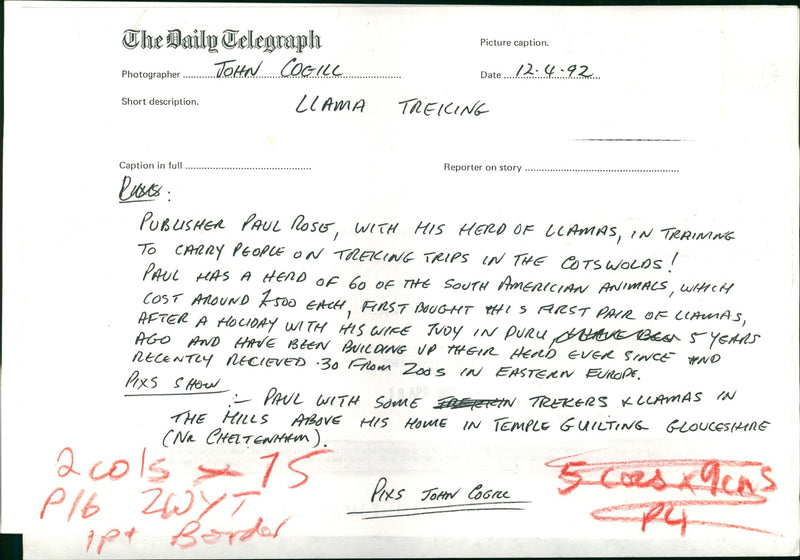 The Daily Telegraph
Picture caption.
Photographer JOHN COGILL
Date 12.4.92
Short description.
LLAMA TREKING
Caption in full
Reporter on story
PUBLISHER PAUL ROSE, WITH HIS HERD OF LLAMAS, IN TRAINING
TO CARRY PEOPLE ON TREKING TRIPS IN THE COTSWOLDS!
PAUL HAS A HERD OF 60 OF THE SOUTH AMERICIAN ANIMALS, WHICH
COST AROUND £500 EACH, FIRST BOUGHT THIS FIRST PAIR OF LLAMAS,
AFTER A HOLIDAY WITH HIS WIFE JUDY IN PURU 5 YEARS
AGO AND HAVE BEEN BUILDING UP THEIR HERD EVER SINCE AND
RECENTLY RECIEVED 30 FROM ZOOS IN EASTERN EUROPE.
PIXS SHOW
:- PAUL WITH SOME TREKERS & LLAMAS IN
THE HILLS ABOVE HIS HOME IN TEMPLE GUILTING GLOUCESHIRE
(NR CHELTENHAM).
2 cols x 15
P16 ZWYT
1pt Border
5 COLS x 9 CMS
P4
PIXS JOHN COGILL